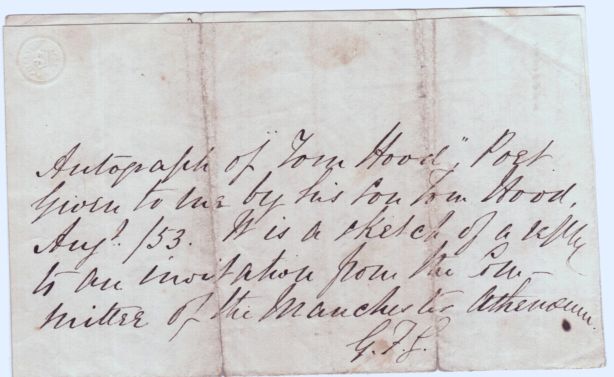 Autograph of "Tom Hood", Poet
Given to me by his Son Tom Hood,
Augt. /53. It is a sketch of a reply
to an invitation from the Com-
mittee of the Manchester Athenaeum.
G.F.S.